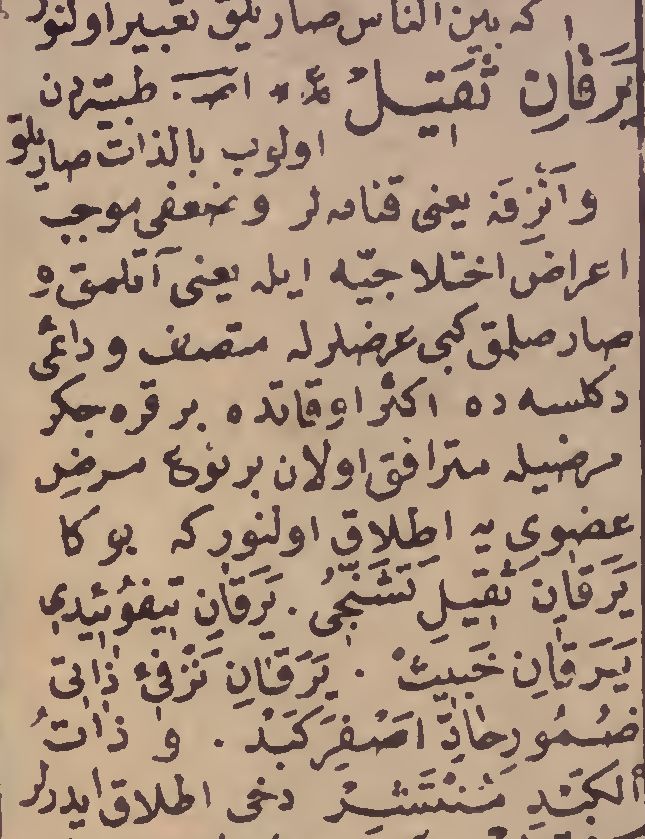 كه بين الناس صاريلق تعبير اولنور
يَرَقَانِ ثَقِيلْ امـ. طبيتدن
اولوب بالذات صاريلق
و اَنْزِفَهٔ يعنى قنامه لر و ضعفى موجب
اعراض اختلاجيّه ايله يعنى آتلمق و
صارصلمق كبى عرضلرله متصف و دائمى
دكلسه ده اكثر اوقاتده بر قره جكر
مرضيله مترافق اولان بر نوع مرضِ
عضوى يه اطلاق اولنور كه بوكا
يَرَقَانِ ثَقِيلِ تَشَنُّجِى . يَرَقَانِ تيفوئيدى
يَرَقَانِ خَبِيثْ . يَرَقَانِ نَزْفِئ ذاتى
ضُمُورِ حَادِّ اَصْفَرِ كَبَدْ . و ذاتُ
الكَبَدِ مُنْتَشِرْ دخى اطلاق ايدرلر